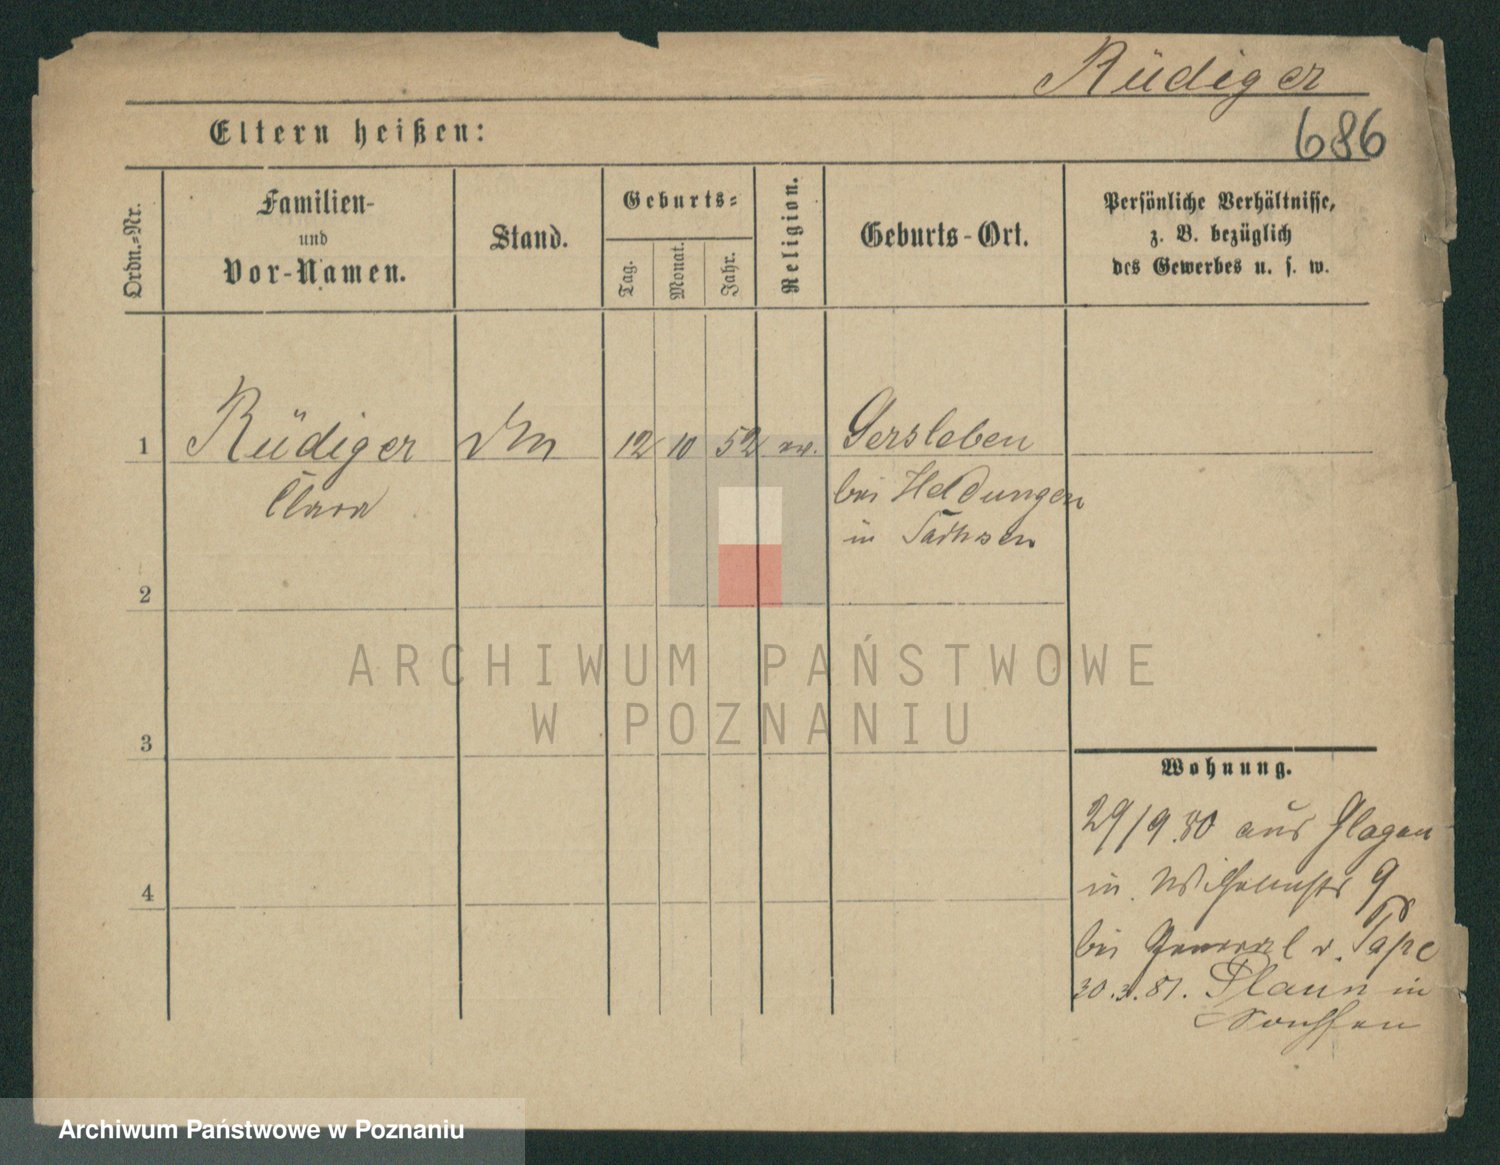 Rüdiger
686
Eltern heißen:
Ordn.=Nr.
Familien-
und
Vor-Namen.
Stand.
Geburts=
Tag.
Monat.
Jahr.
Religion.
Geburts-Ort.
Persönliche Verhältnisse,
z. B. bezüglich
des Gewerbes u. s. w.
1 Rüdiger 12 10 52 Gersleben
Clara bei Heldungen
in Sachsen
2
ARCHIWUM PAŃSTWOWE
W POZNANIU
3
Wohnung.
29/9.80 aus
4
in Wilhelmstr 9
bei General v. Pape
30.3.81. in
Archiwum Państwowe w Poznaniu